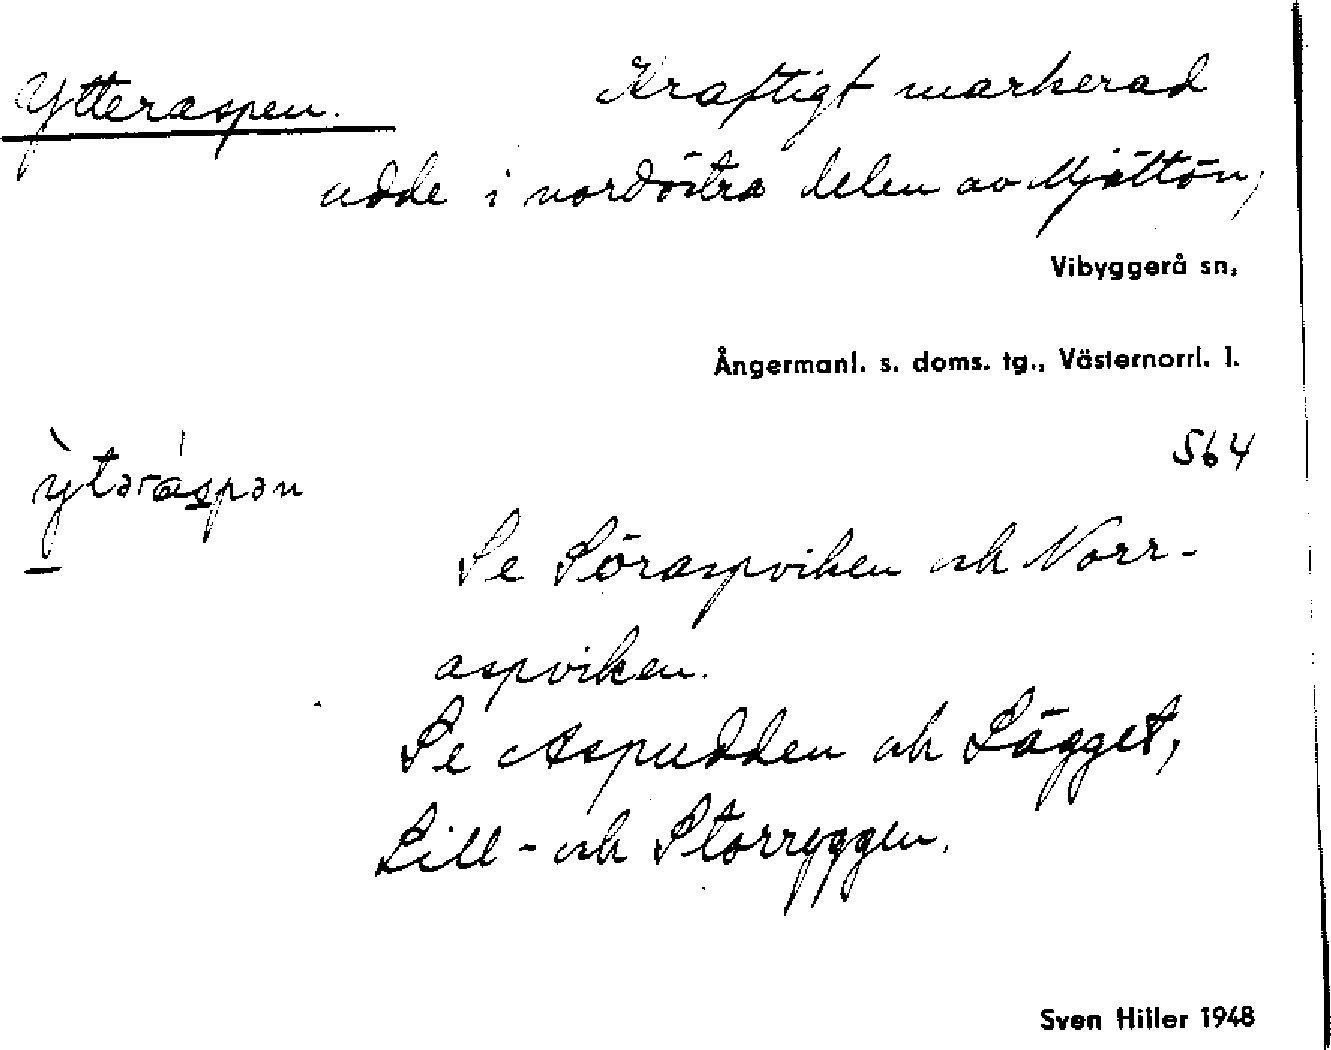 Ytteraspen. Kraftigt markerad
udde i nordöstra delen av Mjältön,
Vibyggerå sn,
Ångermanl. s. doms. tg., Västernorrl. l.
564
ỳtəráspən
Se Söraspviken och Norr-
aspviken.
Se Aspudden och Lägget,
Lill- och Storryggen.
Sven Hiller 1948